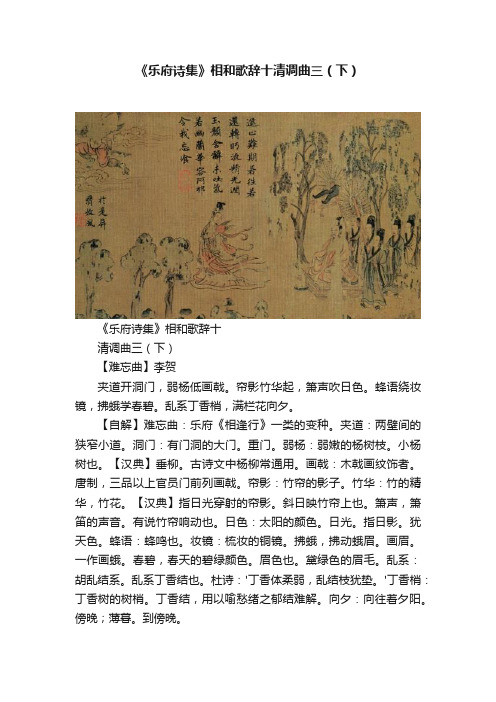 《乐府诗集》相和歌辞十清调曲三（下）
進止難期若往若
還轉眄流精光潤
玉顏含辭未吐氣
若幽蘭華容婀娜
令我忘飡
《乐府诗集》相和歌辞十
清调曲三（下）
【难忘曲】李贺
夹道开洞门，弱杨低画戟。帘影竹华起，箫声吹日色。蜂语绕妆
镜，拂蛾学春碧。乱系丁香梢，满栏花向夕。
【自解】难忘曲：乐府《相逢行》一类的变种。夹道：两壁间的
狭窄小道。洞门：有门洞的大门。重门。弱杨：弱嫩的杨树枝。小杨
树也。【汉典】垂柳。古诗文中杨柳常通用。画戟：木戟画纹饰者。
唐制，三品以上官员门前列画戟。帘影：竹帘的影子。竹华：竹的精
华，竹花。【汉典】指日光穿射的帘影。斜日映竹帘上也。箫声，箫
笛的声音。有说竹帘响动也。日色：太阳的颜色。日光。指日影。犹
天色。蜂语：蜂鸣也。妆镜：梳妆的铜镜。拂蛾，拂动蛾眉。画眉。
一作画蛾。春碧，春天的碧绿颜色。眉色也。黛绿色的眉毛。乱系：
胡乱结系。乱系丁香结也。杜诗：'丁香体柔弱，乱结枝犹垫。'丁香梢：
丁香树的树梢。丁香结，用以喻愁绪之郁结难解。向夕：向往着夕阳。
傍晚；薄暮。到傍晚。